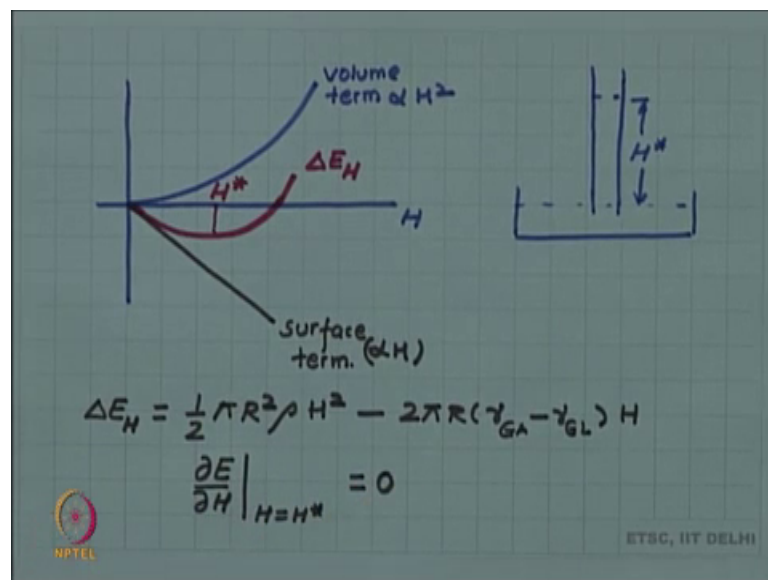 volume
term ∝ H²
ΔE_H
H*
H
H*
surface
term. (∝H)
ΔE_H = 1/2 πR²ρH² − 2πR(γ_GA − γ_GL) H
∂E/∂H |_H=H* = 0
NPTEL
ETSC, IIT DELHI